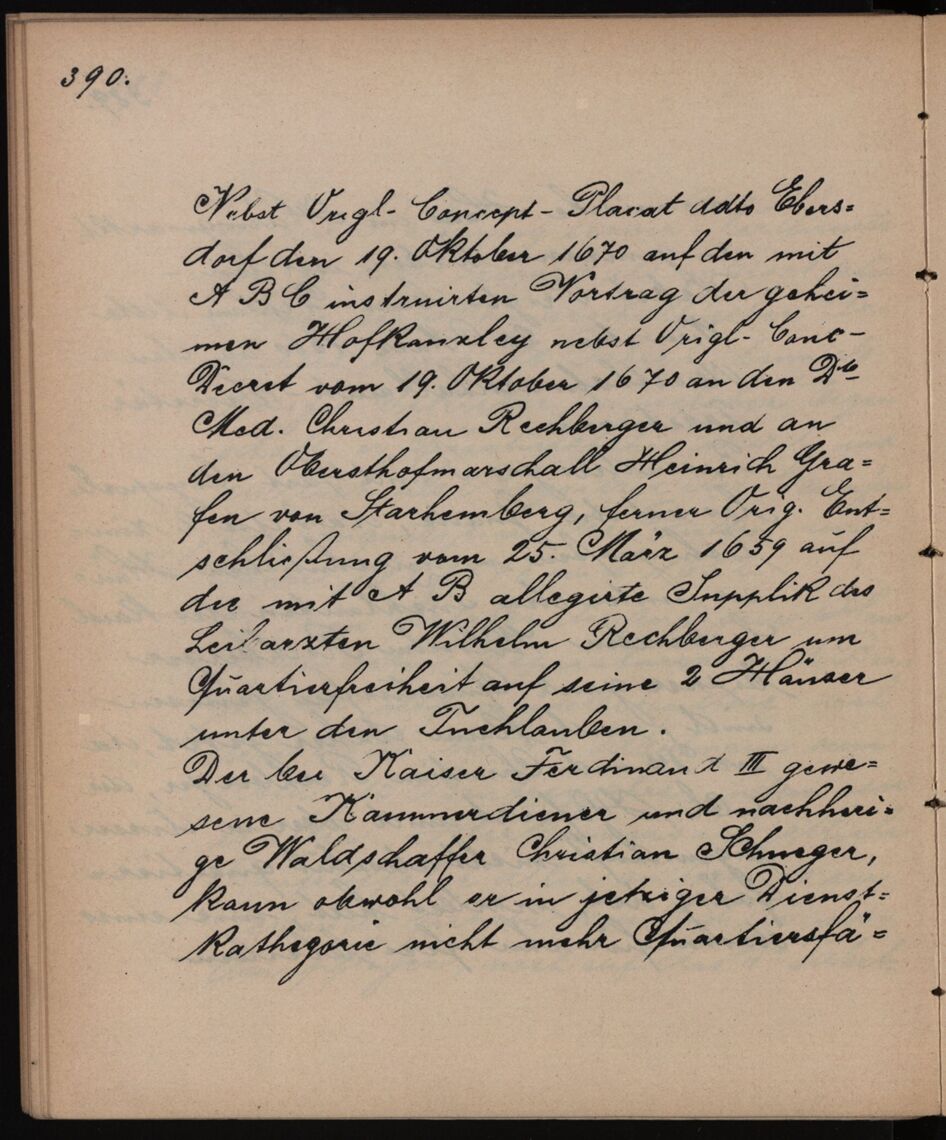 390.
Nebst Origl- Concept- Placat ddto Ebers=
dorf den 19. Oktober 1670 auf den mit
A B C instruirten Vortrag der gehei=
men Hofkanzley nebst Origl- Conc-
Decret vom 19. Oktober 1670 an den
Med. Christian Rechberger und an
den Obersthofmarschall Heinrich Gra=
fen von Starhemberg, ferner Orig. Ent=
schließung vom 25. März 1659 auf
die mit A B allegirte Supplik des
Leibarzten Wilhelm Rechberger um
Quartierfreiheit auf seine 2 Häuser
unter den Tuchlauben.
Der bei Kaiser Ferdinand III gewe=
sene Kammerdiener und nachheri=
ge Waldschaffer Christian Schneger,
kann obwohl er in jetziger Dienst=
kathegorie nicht mehr Quartiersfä=